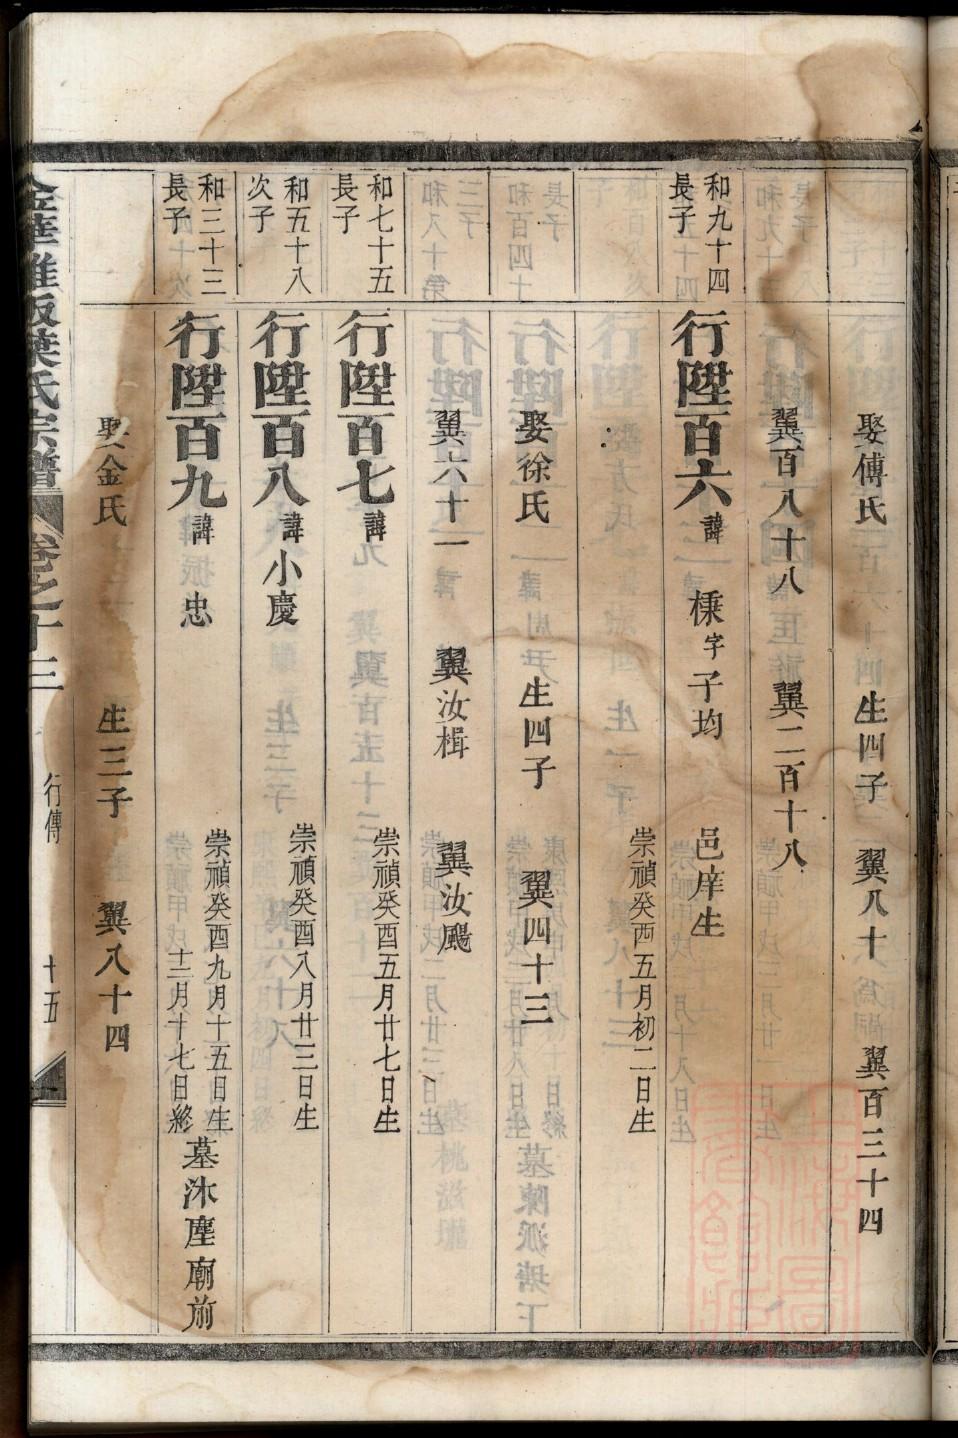 娶傅氏 生四子 翼八十 翼百三十四
翼百八十八 翼二百十八
和九十四
長子
行陞百六 諱 棅 字 子均 邑庠生
崇禎癸酉五月初二日生
娶徐氏 生四子 翼四十三
翼六十一 翼汝楫 翼汝颺
和七十五
長子
行陞百七 諱
崇禎癸酉五月廿七日生
和五十八
次子
行陞百八 諱 小慶
崇禎癸酉八月廿三日生
和三十三
長子
行陞百九 諱 振忠
崇禎癸酉九月十五日生
十二月十七日終
墓沐塵廟前
娶金氏 生三子 翼八十四
葉氏宗譜 卷之十三 行傳 十五